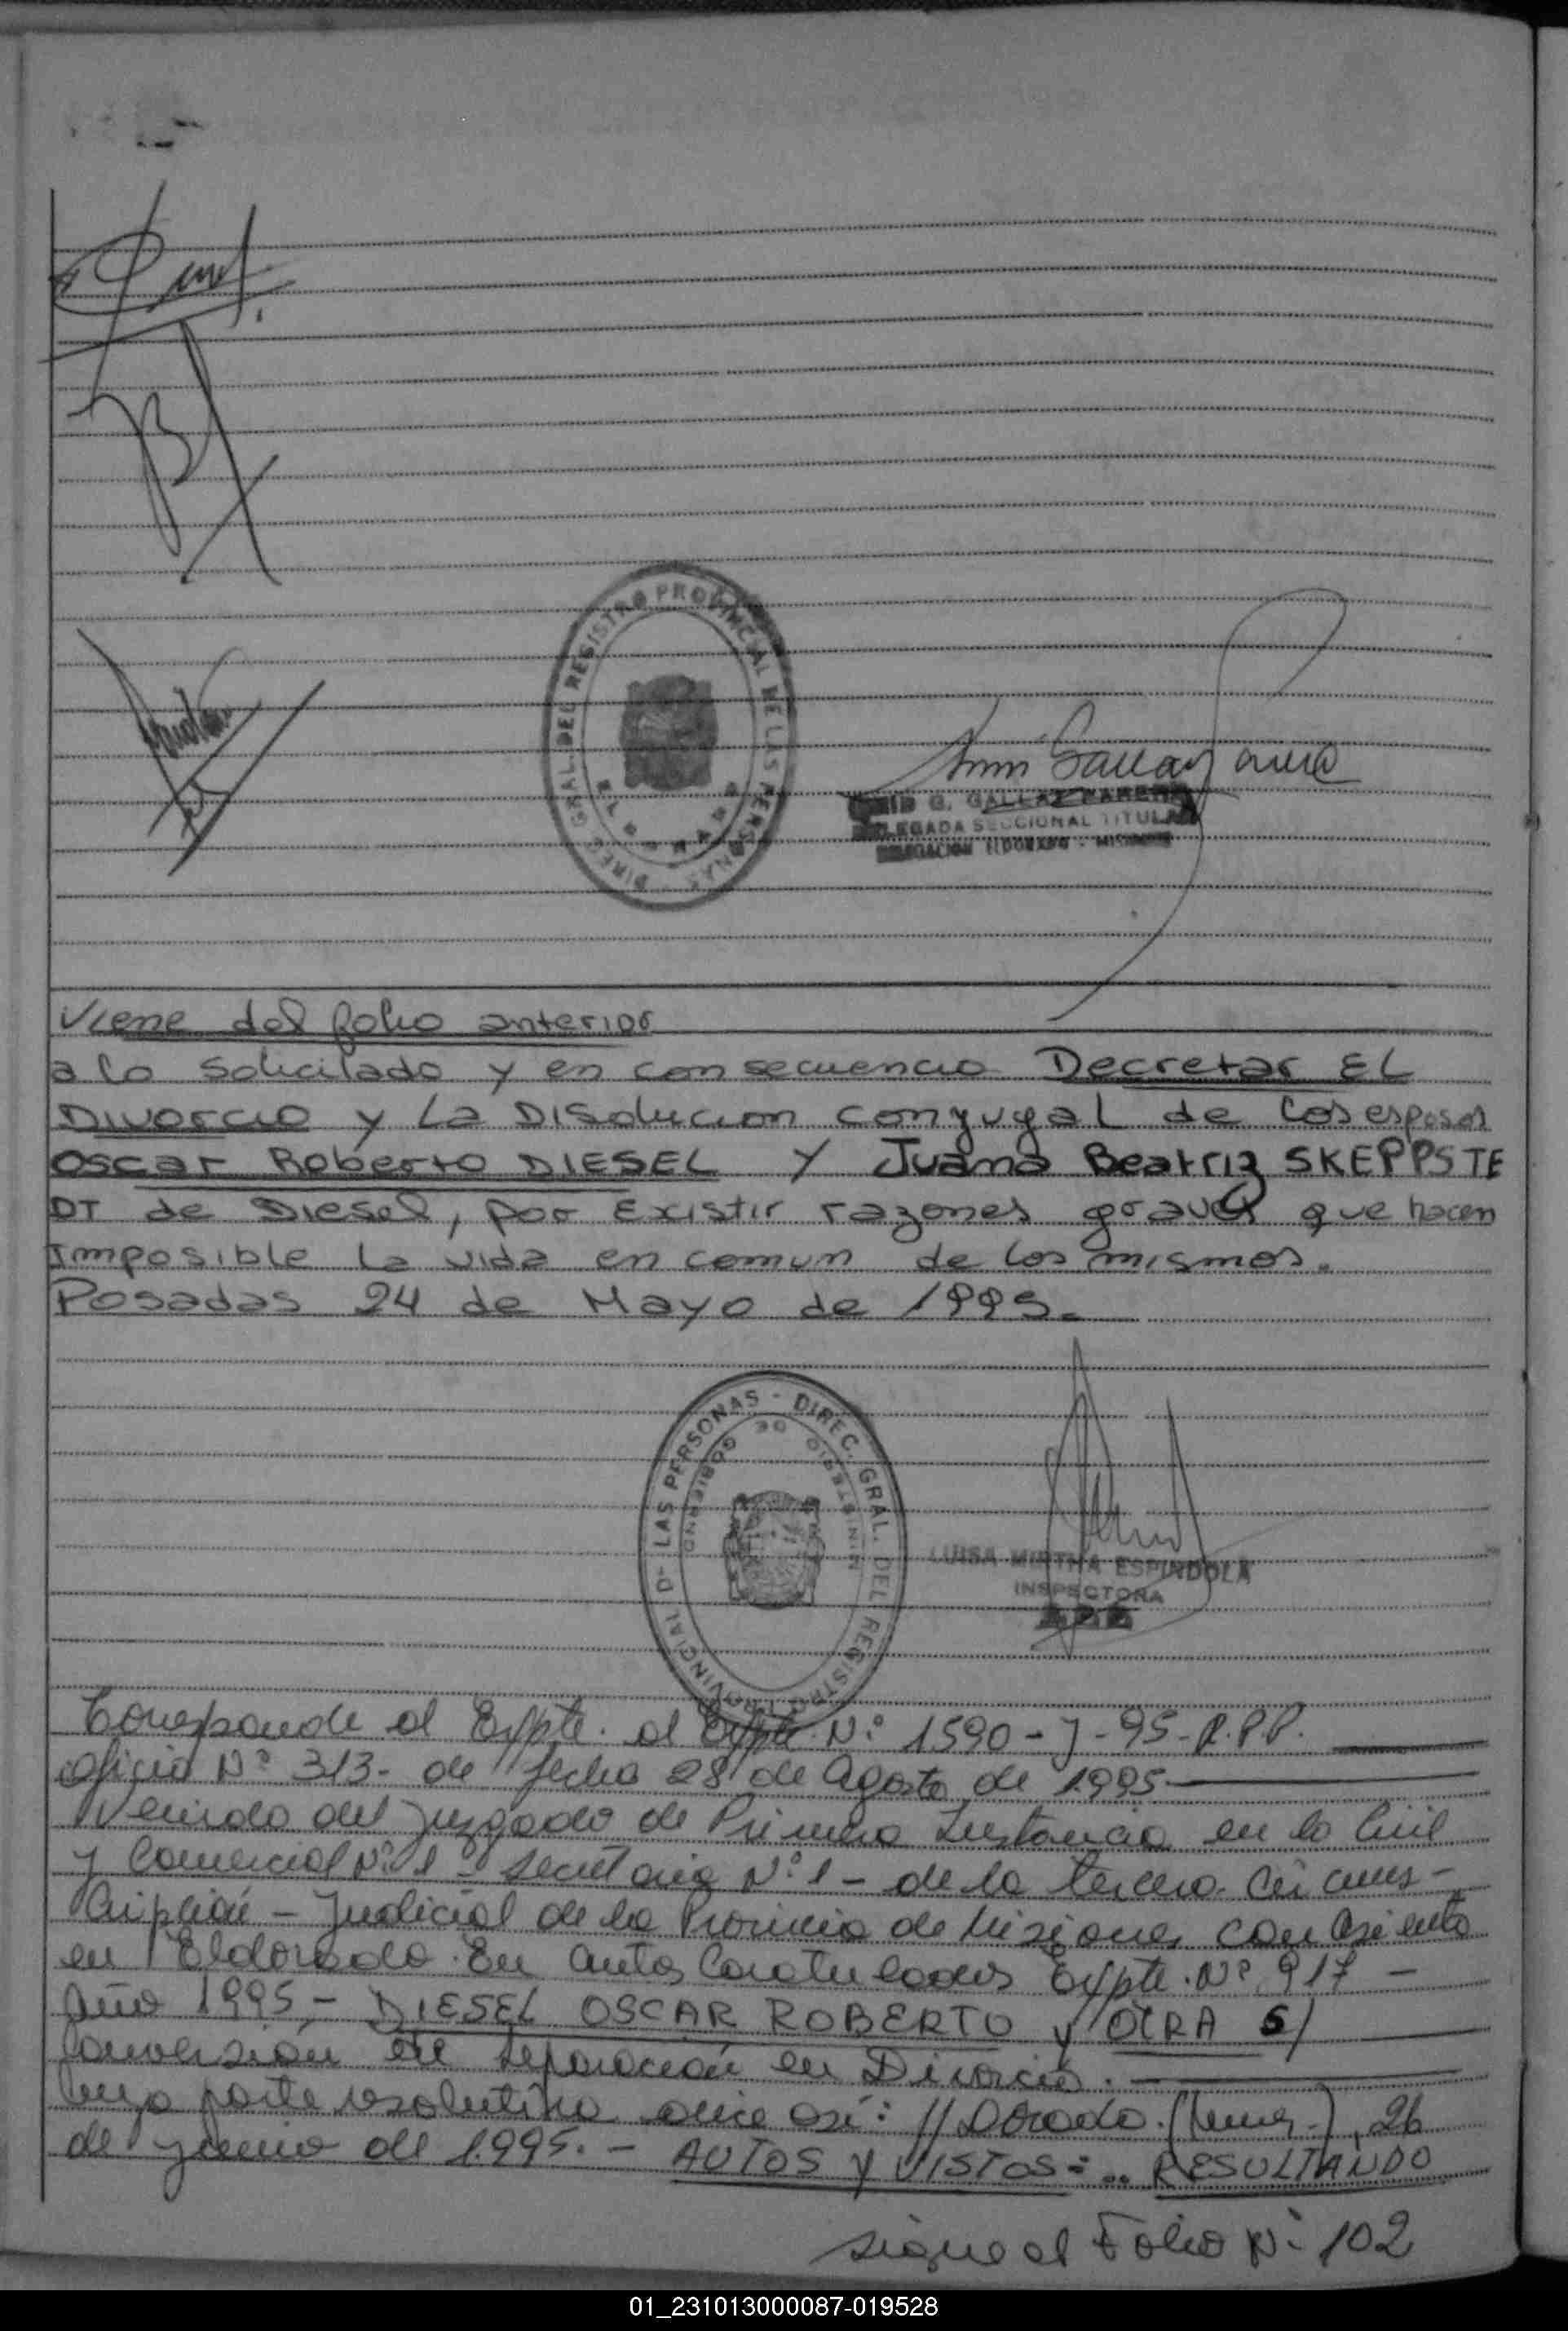 DIREC. GRAL. DEL REGISTRO PROVINCIAL DE LAS PERSONAS
G. GALLAZ PARERA
DELEGADA SECCIONAL TITULAR
DELEGACION ELDORADO - MISIONES
Viene del folio anterior
a lo solicitado y en consecuencia Decretar EL
Divorcio y La Disolucion conyugal de los esposos
Oscar Roberto DIESEL y Juana Beatriz SKEPPSTE
DT de Diesel, por Existir razones graves que hacen
Imposible La vida en comun de los mismos.
Posadas 24 de Mayo de 1995.
DIREC. GRAL. DEL REGISTRO PROVINCIAL D- LAS PERSONAS -
MINISTERIO DE GOBIERNO
LUISA MIRTHA ESPINDOLA
INSPECTORA
Corresponde al Expte. al Expte. N° 1590-J-95-R.P.P.
oficio N° 313- de fecha 28 de Agosto de 1995
Venido del Juzgado de Primera Instancia en lo Civil
y Comercial N° 1 - Secretaria N° 1 - de la tercera Circuns-
cripción - Judicial de la Provincia de Misiones con asiento
en Eldorado. En autos Caratulados Expte. N° 917 -
Año 1995 - DIESEL OSCAR ROBERTO y OTRA S/
Conversión de Separación en Divorcio.
Cuya parte resolutiva dice así: //Dorado. 26
de junio de 1.995. - AUTOS y VISTOS: .. RESULTANDO
sigue al Folio N° 102
01_231013000087-019528